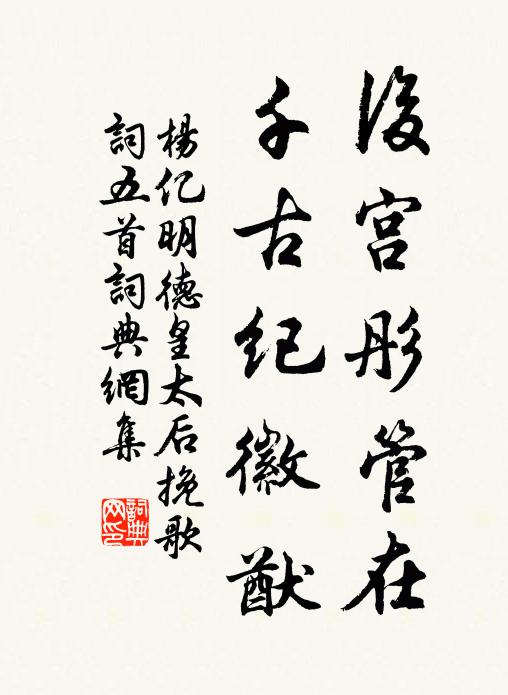 後宮彤管在
千古紀徽猷
楊亿明德皇太后挽歌
詞五首詞典網集
詞典网印